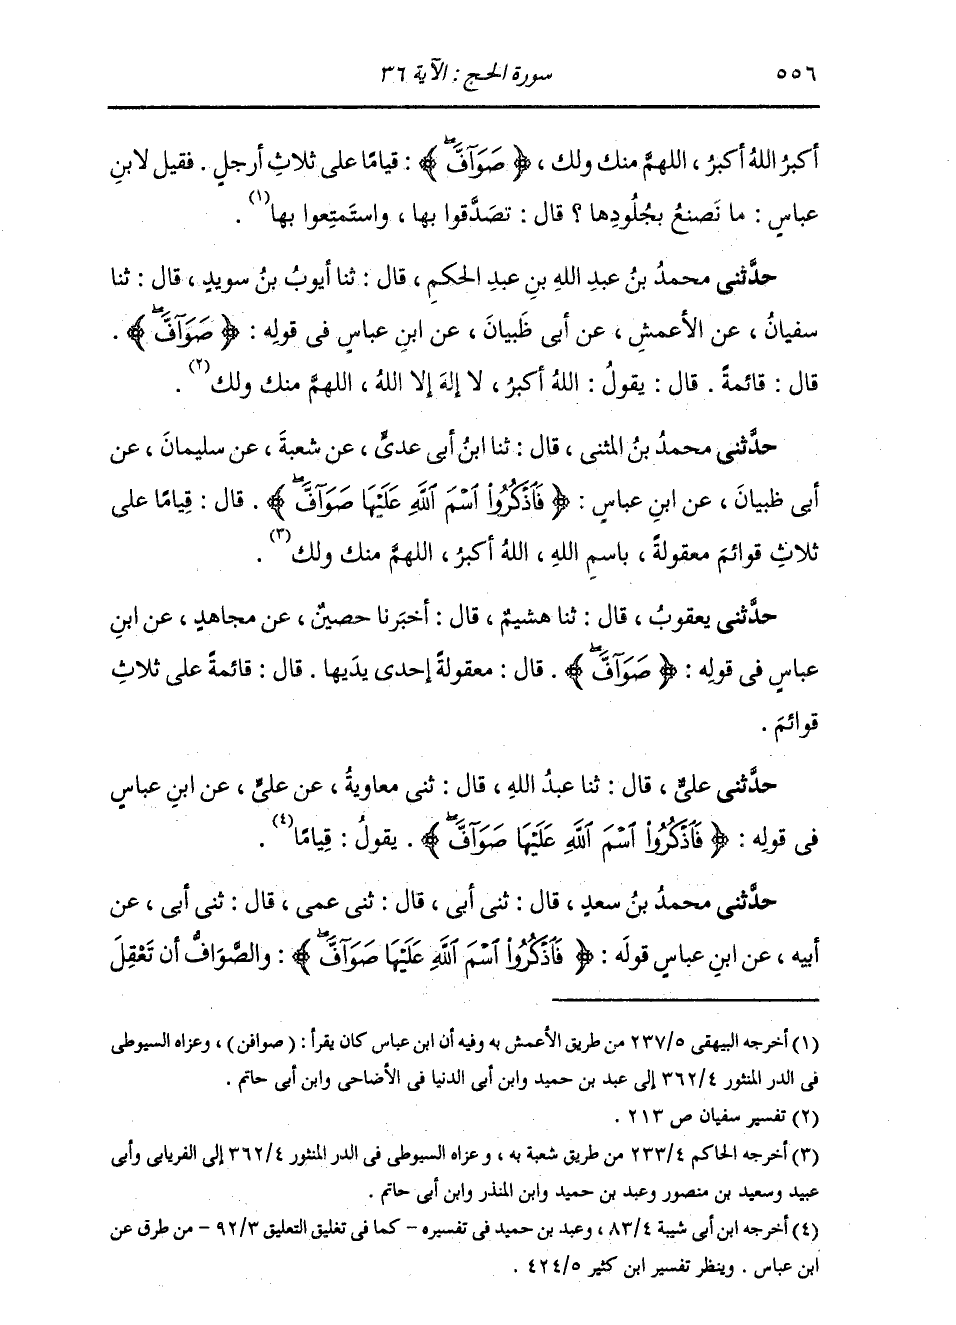 ٥٥٦ سورة الحج : الآية ٣٦
أكبرُ اللهُ أكبرُ ، اللهمَّ منك ولك ، ﴿ صَوَآفَّۖ ﴾ : قيامًا على ثلاثِ أرجلٍ . فقيل لابنِ
عباسٍ : ما نَصنعُ بجُلُودِها ؟ قال : تصَدَّقوا بها ، واستَمتِعوا بها(١) .
حدَّثنى محمدُ بنُ عبدِ اللهِ بنِ عبدِ الحكمِ ، قال : ثنا أيوبُ بنُ سويدٍ ، قال : ثنا
سفيانُ ، عن الأعمشِ ، عن أبى ظَبيانَ ، عن ابنِ عباسٍ فى قولِه : ﴿ صَوَآفَّۖ ﴾ .
قال : قائمةً . قال : يقولُ : اللهُ أكبرُ ، لا إلهَ إلا اللهُ ، اللهمَّ منك ولك(٢) .
حدَّثنى محمدُ بنُ المثنى ، قال : ثنا ابنُ أبى عدىٍّ ، عن شعبةَ ، عن سليمانَ ، عن
أبى ظبيانَ ، عن ابنِ عباسٍ : ﴿ فَٱذْكُرُوا۟ ٱسْمَ ٱللَّهِ عَلَيْهَا صَوَآفَّۖ ﴾ . قال : قِيامًا على
ثلاثِ قوائمَ معقولةً ، باسمِ اللهِ ، اللهُ أكبرُ ، اللهمَّ منك ولك(٣) .
حدَّثنى يعقوبُ ، قال : ثنا هشيمٌ ، قال : أخبَرنا حصينٌ ، عن مجاهدٍ ، عن ابنِ
عباسٍ فى قولِه : ﴿ صَوَآفَّۖ ﴾ . قال : معقولةً إحدى يدَيها . قال : قائمةً على ثلاثِ
قوائمَ .
حدَّثنى علىٌّ ، قال : ثنا عبدُ اللهِ ، قال : ثنى معاويةُ ، عن علىٍّ ، عن ابنِ عباسٍ
فى قولِه : ﴿ فَٱذْكُرُوا۟ ٱسْمَ ٱللَّهِ عَلَيْهَا صَوَآفَّۖ ﴾ . يقولُ : قِيامًا(٤) .
حدَّثنى محمدُ بنُ سعدٍ ، قال : ثنى أبى ، قال : ثنى عمى ، قال : ثنى أبى ، عن
أبيه ، عن ابنِ عباسٍ قولَه : ﴿ فَٱذْكُرُوا۟ ٱسْمَ ٱللَّهِ عَلَيْهَا صَوَآفَّۖ ﴾ : والصَّوَافُّ أن تَعْقِلَ
(١) أخرجه البيهقى ٢٣٧/٥ من طريق الأعمش به وفيه أن ابن عباس كان يقرأ : ( صوافن ) ، وعزاه السيوطى
فى الدر المنثور ٣٦٢/٤ إلى عبد بن حميد وابن أبى الدنيا فى الأضاحى وابن أبى حاتم .
(٢) تفسير سفيان ص ٢١٣ .
(٣) أخرجه الحاكم ٢٣٣/٤ من طريق شعبة به ، وعزاه السيوطى فى الدر المنثور ٣٦٢/٤ إلى الفريابى وأبى
عبيد وسعيد بن منصور وعبد بن حميد وابن المنذر وابن أبى حاتم .
(٤) أخرجه ابن أبى شيبة ٨٣/٤ ، وعبد بن حميد فى تفسيره – كما فى تغليق التعليق ٩٢/٣ – من طرق عن
ابن عباس . وينظر تفسير ابن كثير ٤٢٤/٥ .